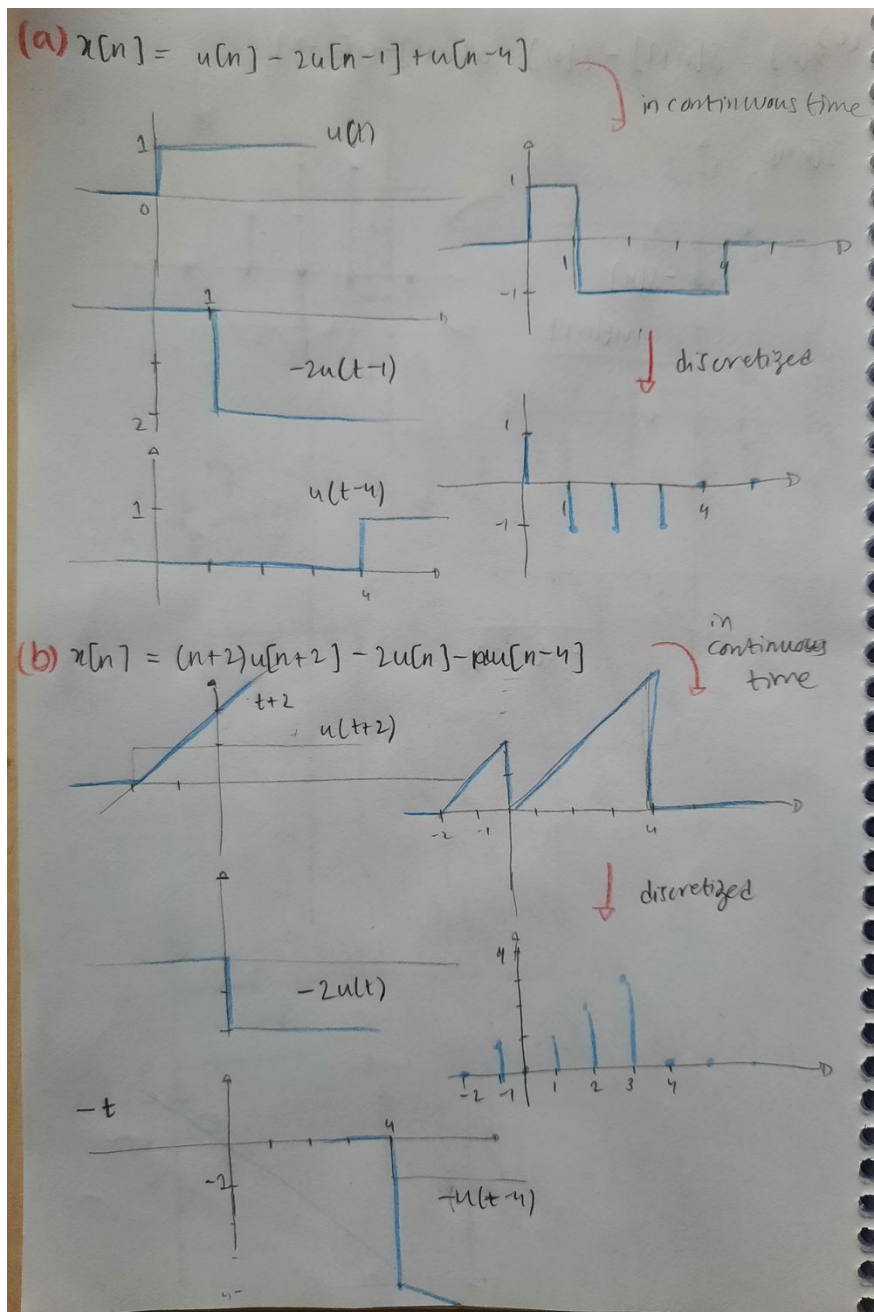 (a) x[n] = u[n] - 2u[n-1] + u[n-4]
in continuous time
1
u(t)
0
1
1
4
-1
1
-2u(t-1)
2
discretized
1
1
4
-1
u(t-4)
1
4
(b) x[n] = (n+2)u[n+2] - 2u[n] - nu[n-4]
in
continuous
time
t+2
u(t+2)
-2
-1
4
discretized
-2u(t)
4
-2
-1
1
2
3
4
-t
4
-1
-u(t-4)